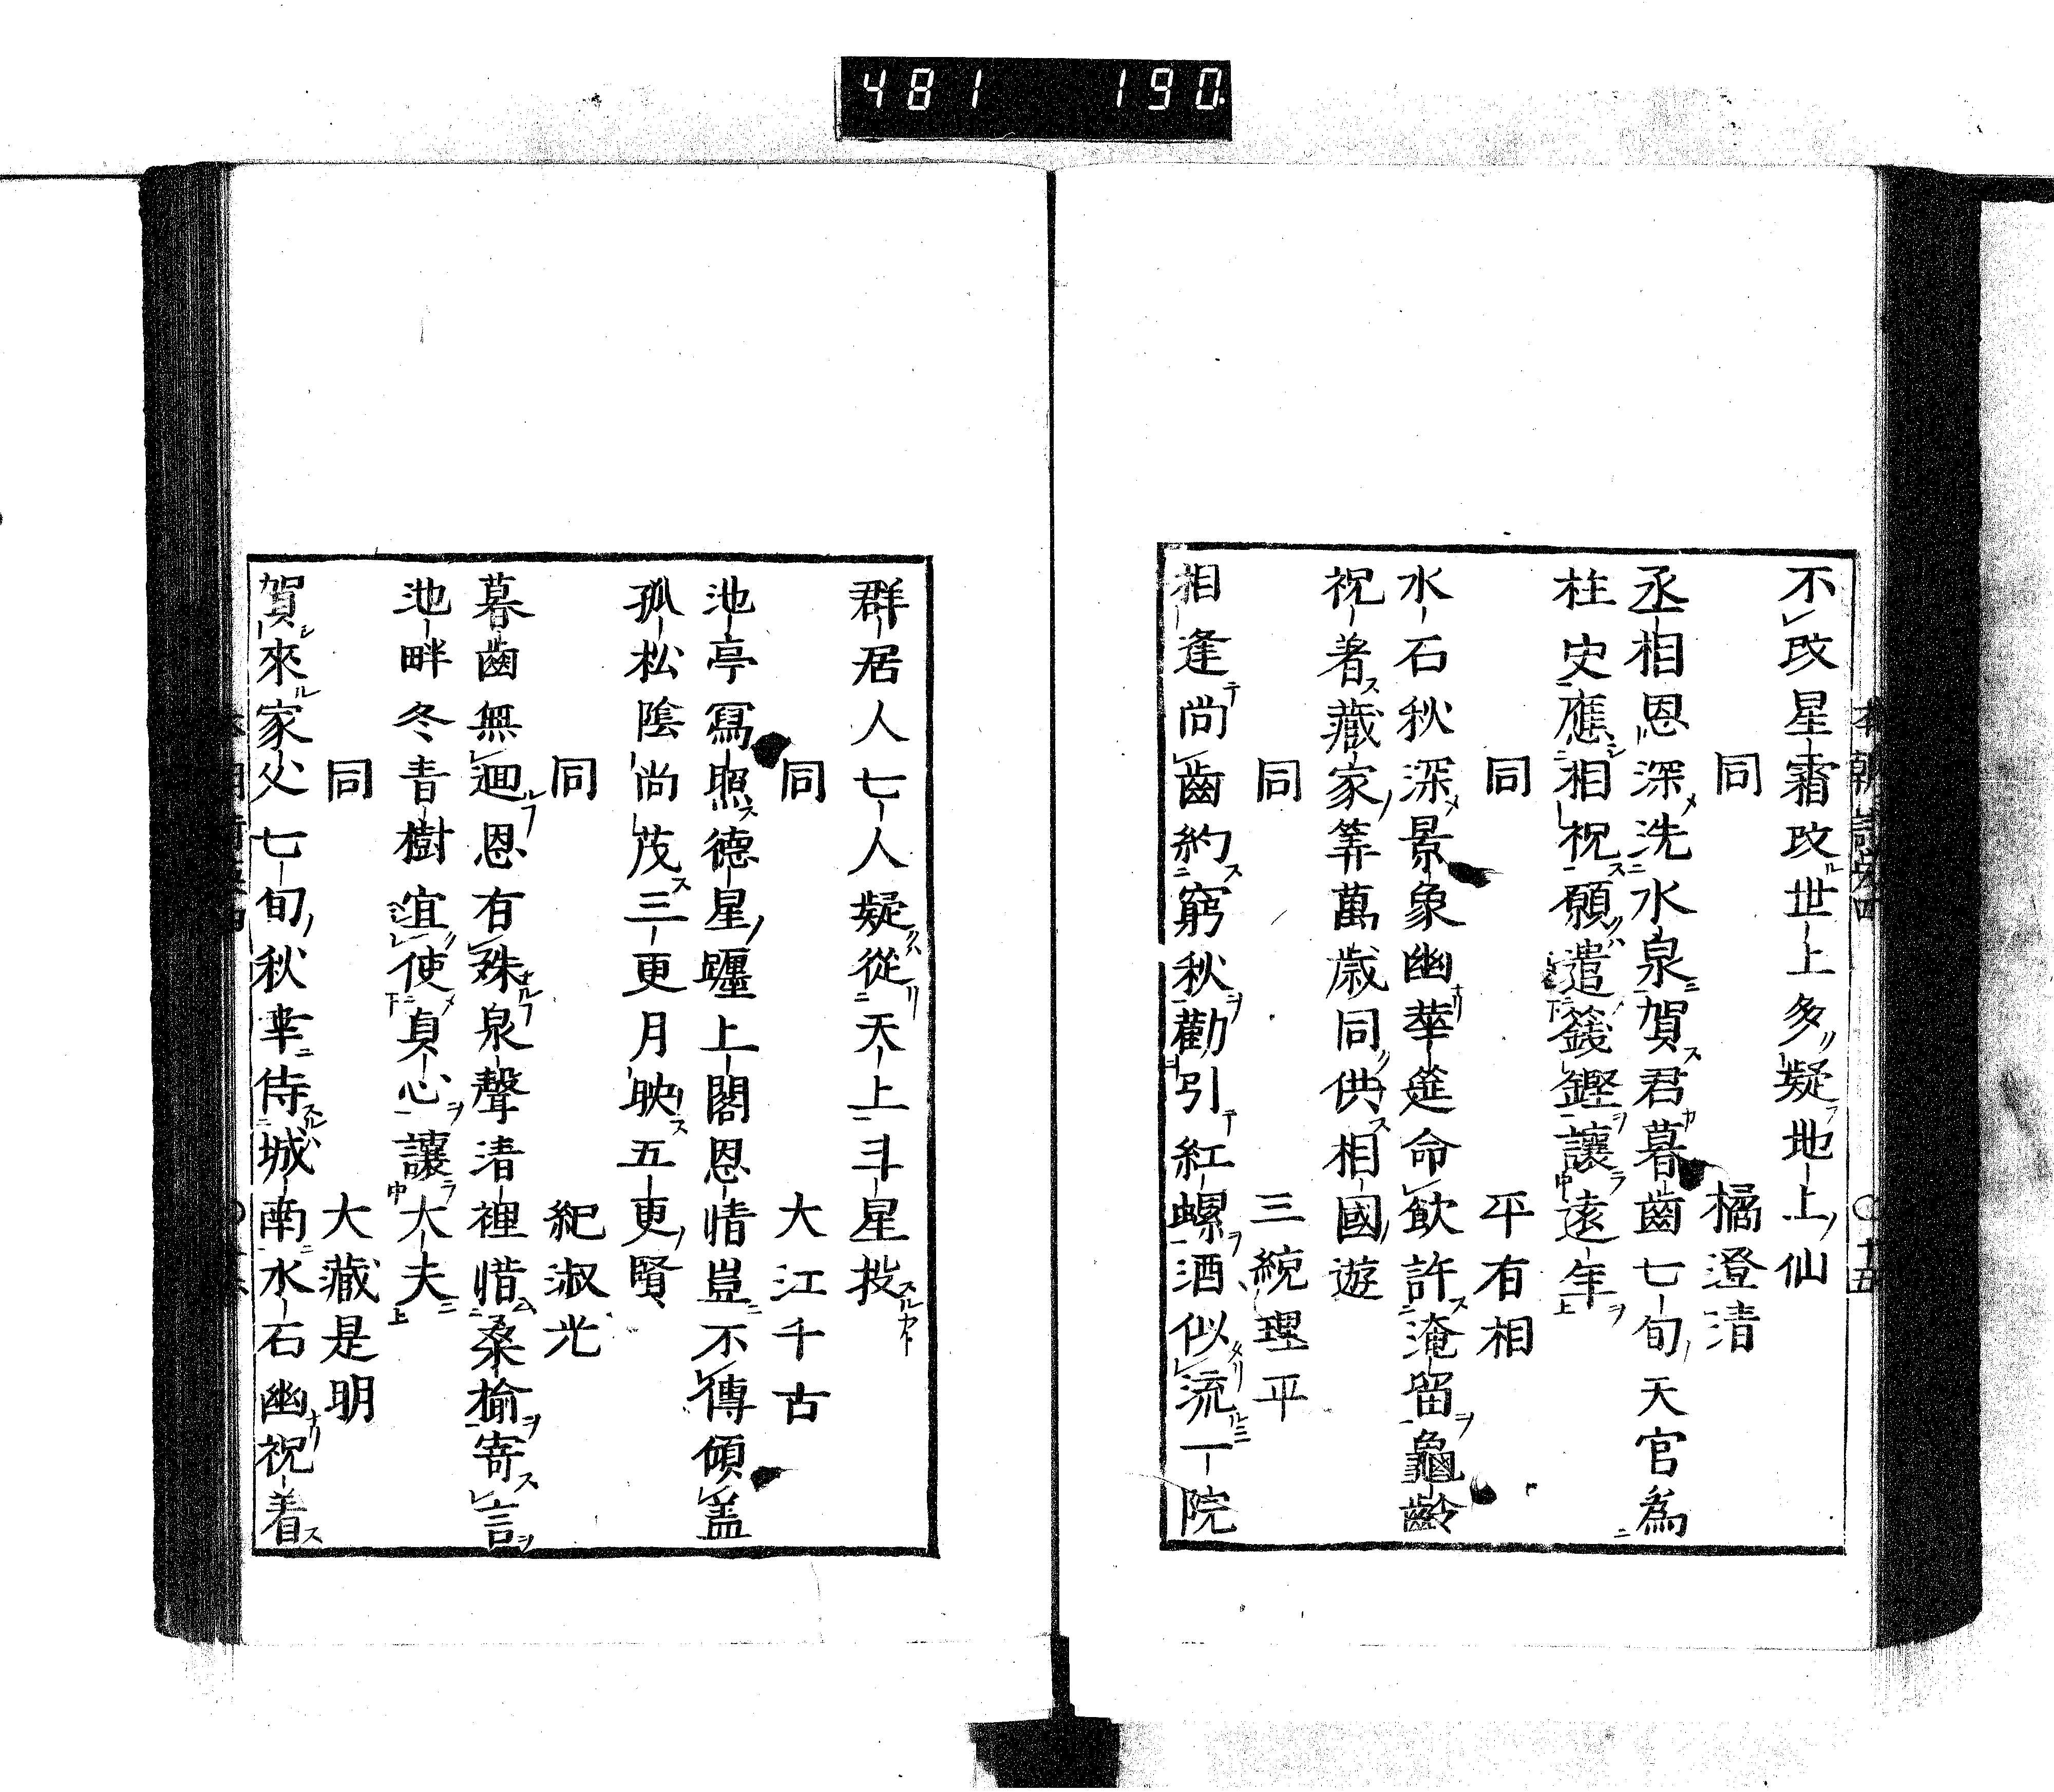 481 190
不改星霜改世上多疑地上仙
同 橘澄清
丞相恩深洗水泉賀君暮齒七旬天官為
柱史應相祝願遣籛鏗讓遠年
同 平有相
水石秋深景象幽華筵命飲許淹留龜齡
祝著藏家筭萬歳同供相國遊
同 三統理平
相逢尚齒約窮秋勸引紅螺酒似流一院
群居人七人疑從天上斗星投
同 大江千古
池亭寫照德星躔上閣恩情豈不傳傾盖
孤松陰尚茂三更月映五更賢
同 紀淑光
暮齒無迴恩有殊泉聲清裡惜桑楡寄言
池畔冬青樹宜使貞心讓大夫
同 大藏是明
賀來家父七旬秋幸侍城南水石幽祝着